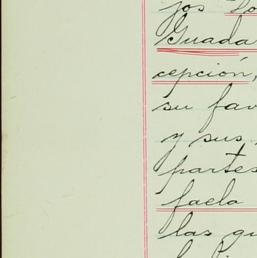 jos Do
Guada
cepción,
su fav
y sus
partes
faela
las qu